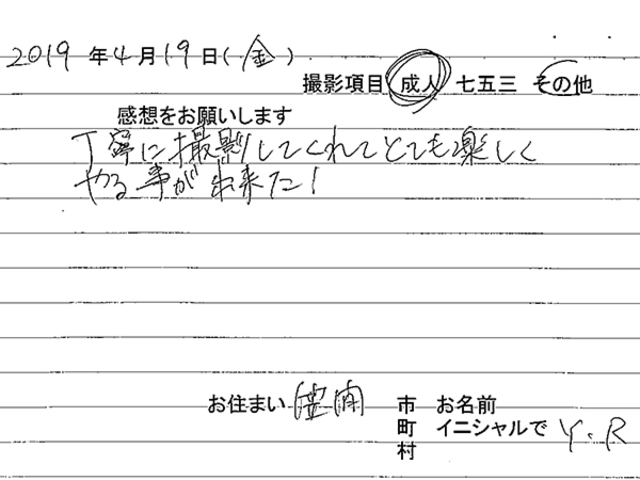 2019 年 4 月 19 日 ( 金 )
撮影項目 成人 七五三 その他
感想をお願いします
丁寧に撮影してくれてとても楽しく
やる事が出来た!
お住まい 市 お名前
町 イニシャルで Y.R
村